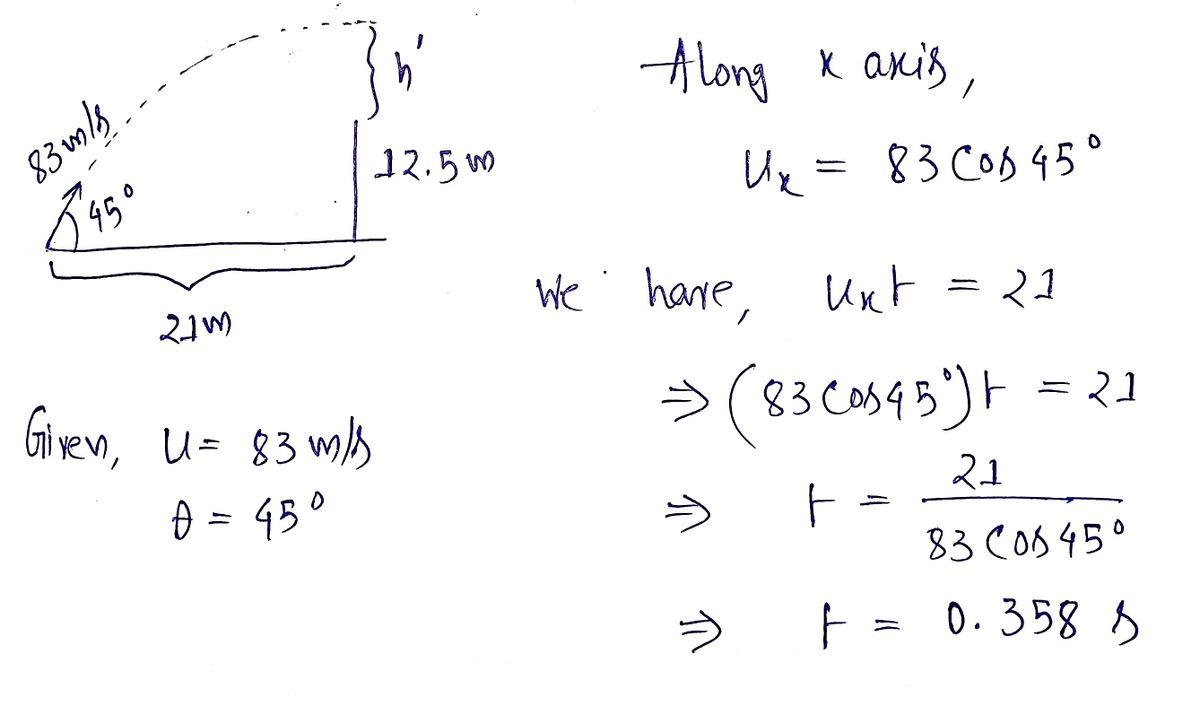 h'
83 m/s
45°
12.5 m
21 m
Given, u = 83 m/s
θ = 45°
Along x axis,
Ux = 83 Cos 45°
We have, Uxt = 21
⇒ (83 Cos 45°) t = 21
⇒ t = 21 / 83 Cos 45°
⇒ t = 0.358 s